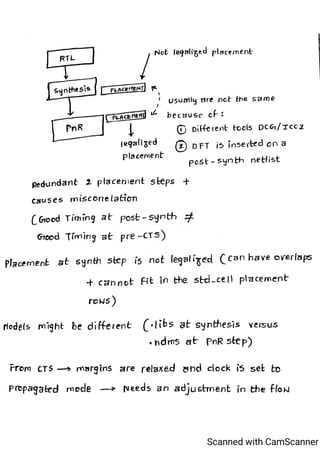 Not legalized placement
RTL
Synthesis
PLACEMENT
usually are not the same
PLACEMENT
because of :
PnR
① Different tools DCG/ICC2
legalized
placement
② DFT is inserted on a
post-synth netlist
Redundant 2 placement steps +
causes miscorrelation
(Good Timing at post-synth ≠
Good Timing at pre-CTS)
Placement at synth step is not legalized (can have overlaps
+ cannot fit in the std-cell placement
rows)
Models might be different (.libs at synthesis versus
.ndms at PnR step)
From CTS → margins are relaxed and clock is set to
propagated mode → Needs an adjustment in the flow
Scanned with CamScanner